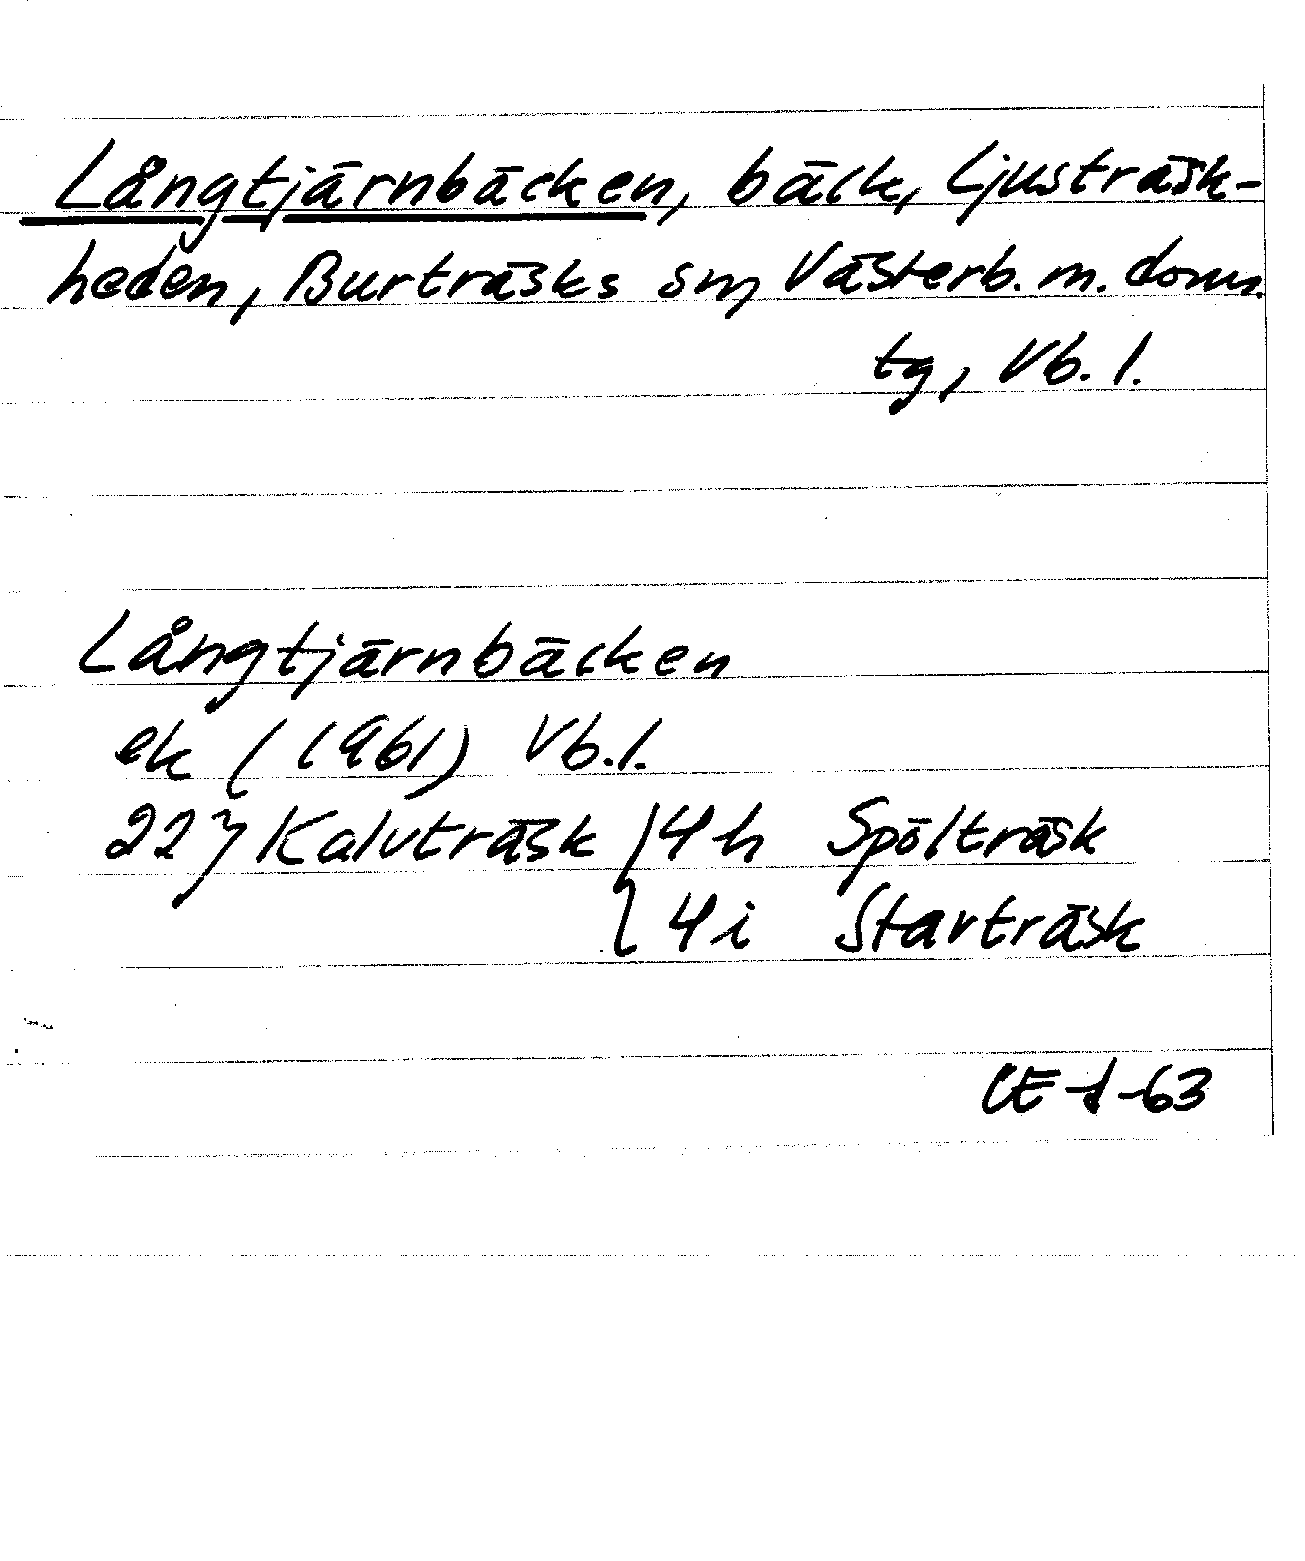 Långtjärnbäcken, bäck, Ljusträsk-
heden, Burträsks sn, Västerb. m. doms.
tg, Vb. l.
Långtjärnbäcken
ek (1961) Vb.l.
22J Kalvträsk 4h Spölträsk
4i Starträsk
CE-1-63